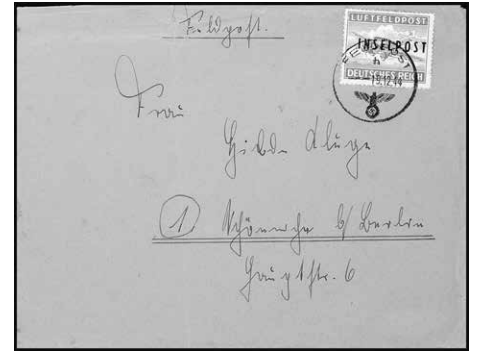 Feldpost.
LUFTFELDPOST
INSELPOST
DEUTSCHES REICH
FELDPOST
h
15.12.44
Frau
Hilde Kluge
1 Schöneiche b/ Berlin
Hauptstr. 6